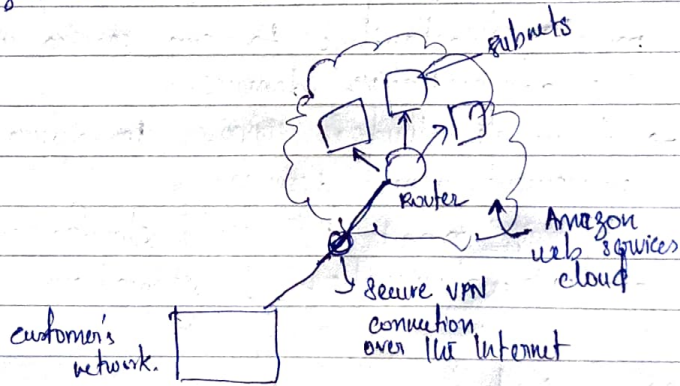 subnets
Router
Amazon
web services
cloud
Secure VPN
connection
over the Internet
customer's
network.